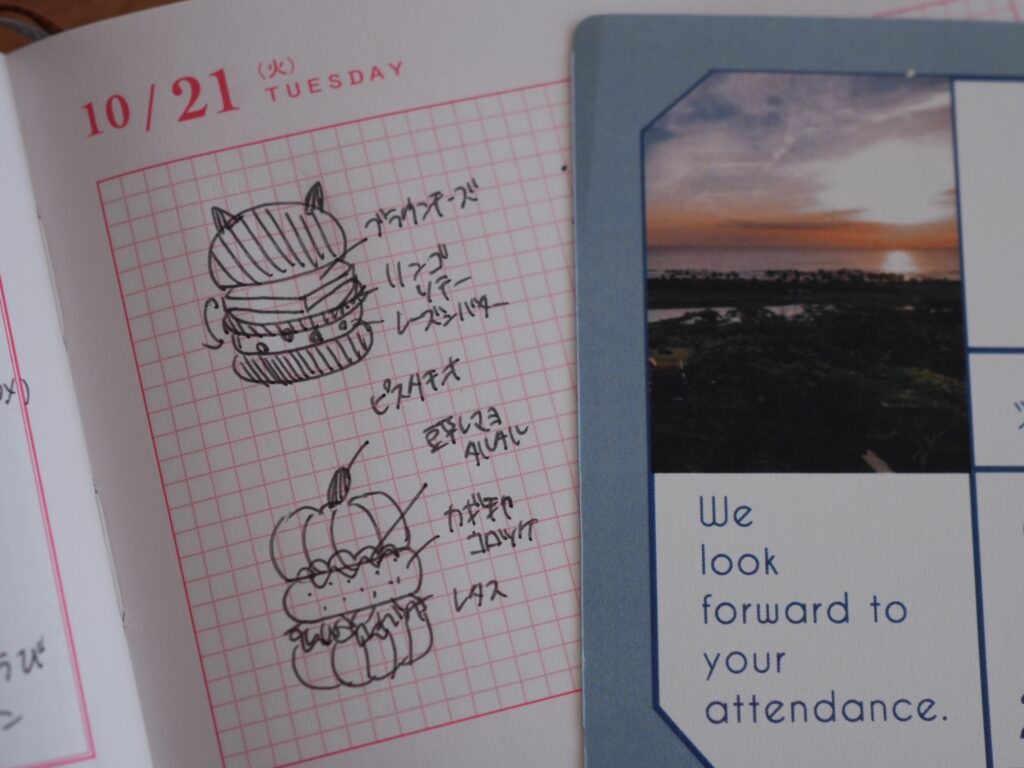 10/21 (火) TUESDAY
ブラウンチーズ
リンゴ
ソテー
レーズンバター
ピスタチオ
豆乳マヨ
タルタル
カボチャ
コロッケ
レタス
We
look
forward to
your
attendance.